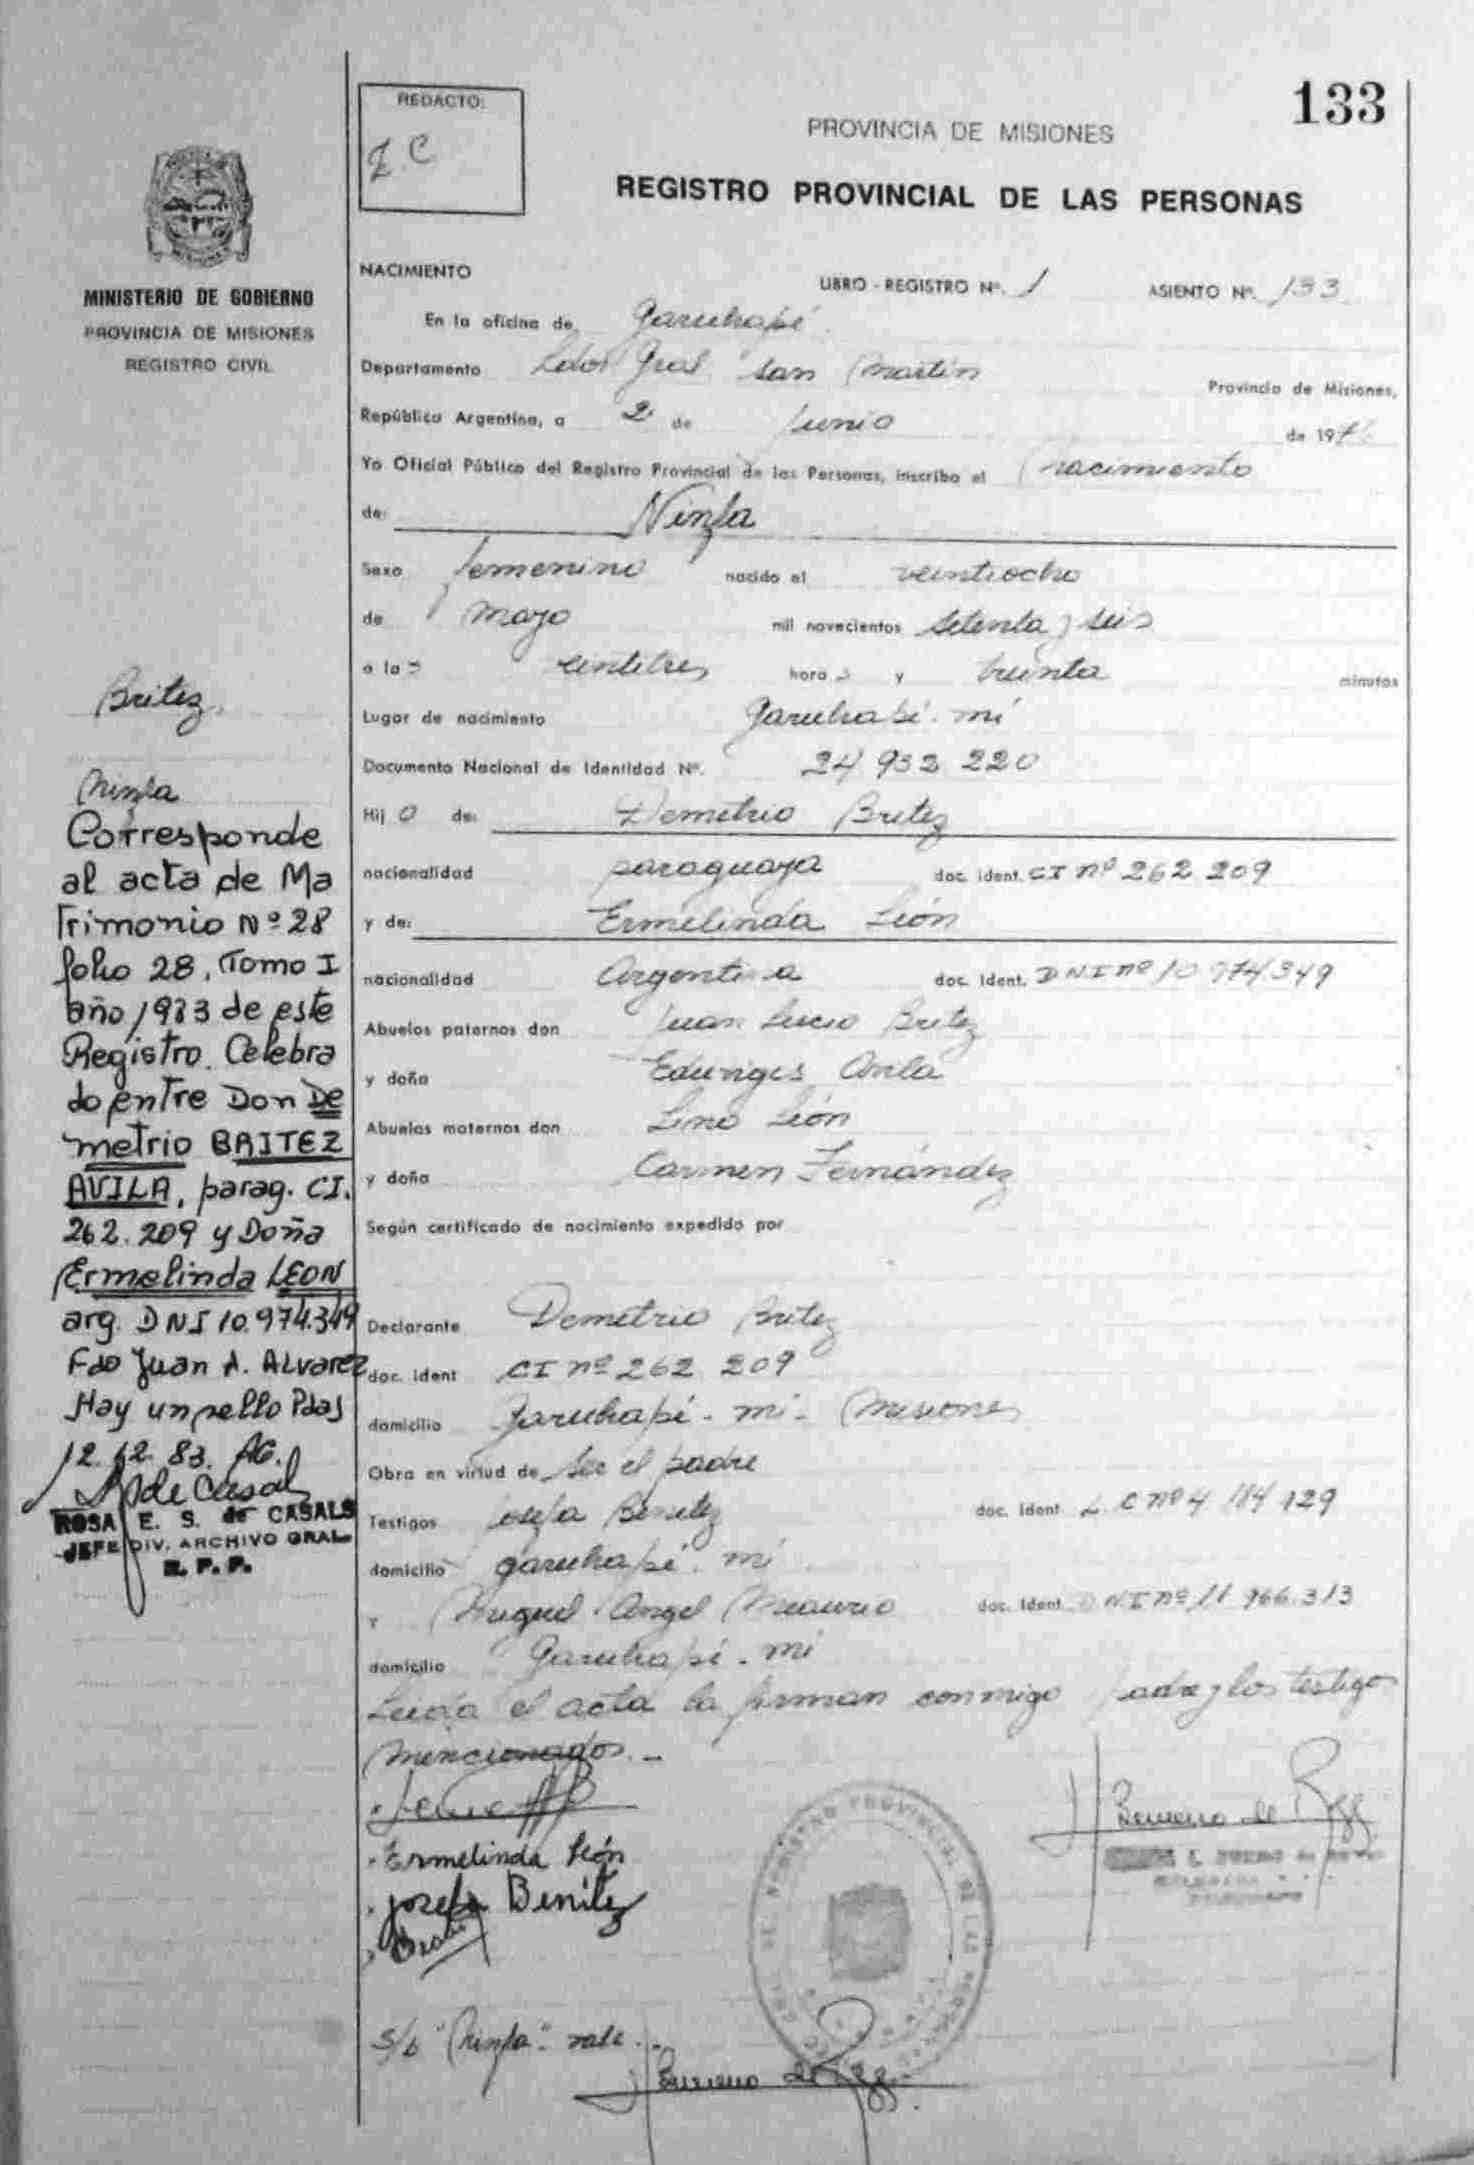 133
REDACTO:
Z.C
PROVINCIA DE MISIONES
REGISTRO PROVINCIAL DE LAS PERSONAS
MINISTERIO DE GOBIERNO
PROVINCIA DE MISIONES
REGISTRO CIVIL
NACIMIENTO
LIBRO - REGISTRO Nº. 1 ASIENTO Nº. 133
En la oficina de Garuhapé
Departamento Ldor Gral San Martin Provincia de Misiones,
República Argentina, a 2 de Junio de 197
Yo Oficial Público del Registro Provincial de las Personas, inscribo el nacimiento
de: Ninfa
Sexo femenino nacido el veintiocho
de mayo mil novecientos setenta y seis
a las horas y treinta minutos
Lugar de nacimiento Garuhapé. mí
Documento Nacional de Identidad Nº. 24 932 220
Hij o de: Demetrio Britez
nacionalidad paraguaya doc. ident. CI nº 262 209
y de: Ermelinda León
nacionalidad Argentina doc. ident. DNI nº 10 974.349
Abuelos paternos don Juan Lucio Britez
y doña Eduvigis Avila
Abuelos maternos don Lino León
y doña Carmen Fernández
Según certificado de nacimiento expedido por
Declarante Demetrio Britez
doc. ident CI nº 262 209
domicilio Garuhapé - mí - Misiones
Obra en virtud de ser el padre
Testigos Josefa Benitez doc. ident L.C nº 4 184 129
domicilio garuhapé. mí
y Miguel Angel doc. ident DNI nº 11 966.313
domicilio Garuhapé. mí
Leida el acta la firman conmigo padre y los testigos
mencionados. -
Ermelinda León
Josefa Benitez
S/b "Ninfa" vale.
Britez
Ninfa
Corresponde
al acta de Ma
trimonio Nº 28
folio 28, Tomo I
año 1983 de este
Registro. Celebra
do entre Don De
metrio BRITEZ
AVILA, parag. CI.
262.209 y Doña
Ermelinda LEON
arg. DNI 10.974.349
Fdo Juan A. Alvarez
Hay un sello Pdas
12.12.83. AG.
de Casal
ROSA E. S. de CASALS
JEFE DIV. ARCHIVO GRAL
R. P. P.